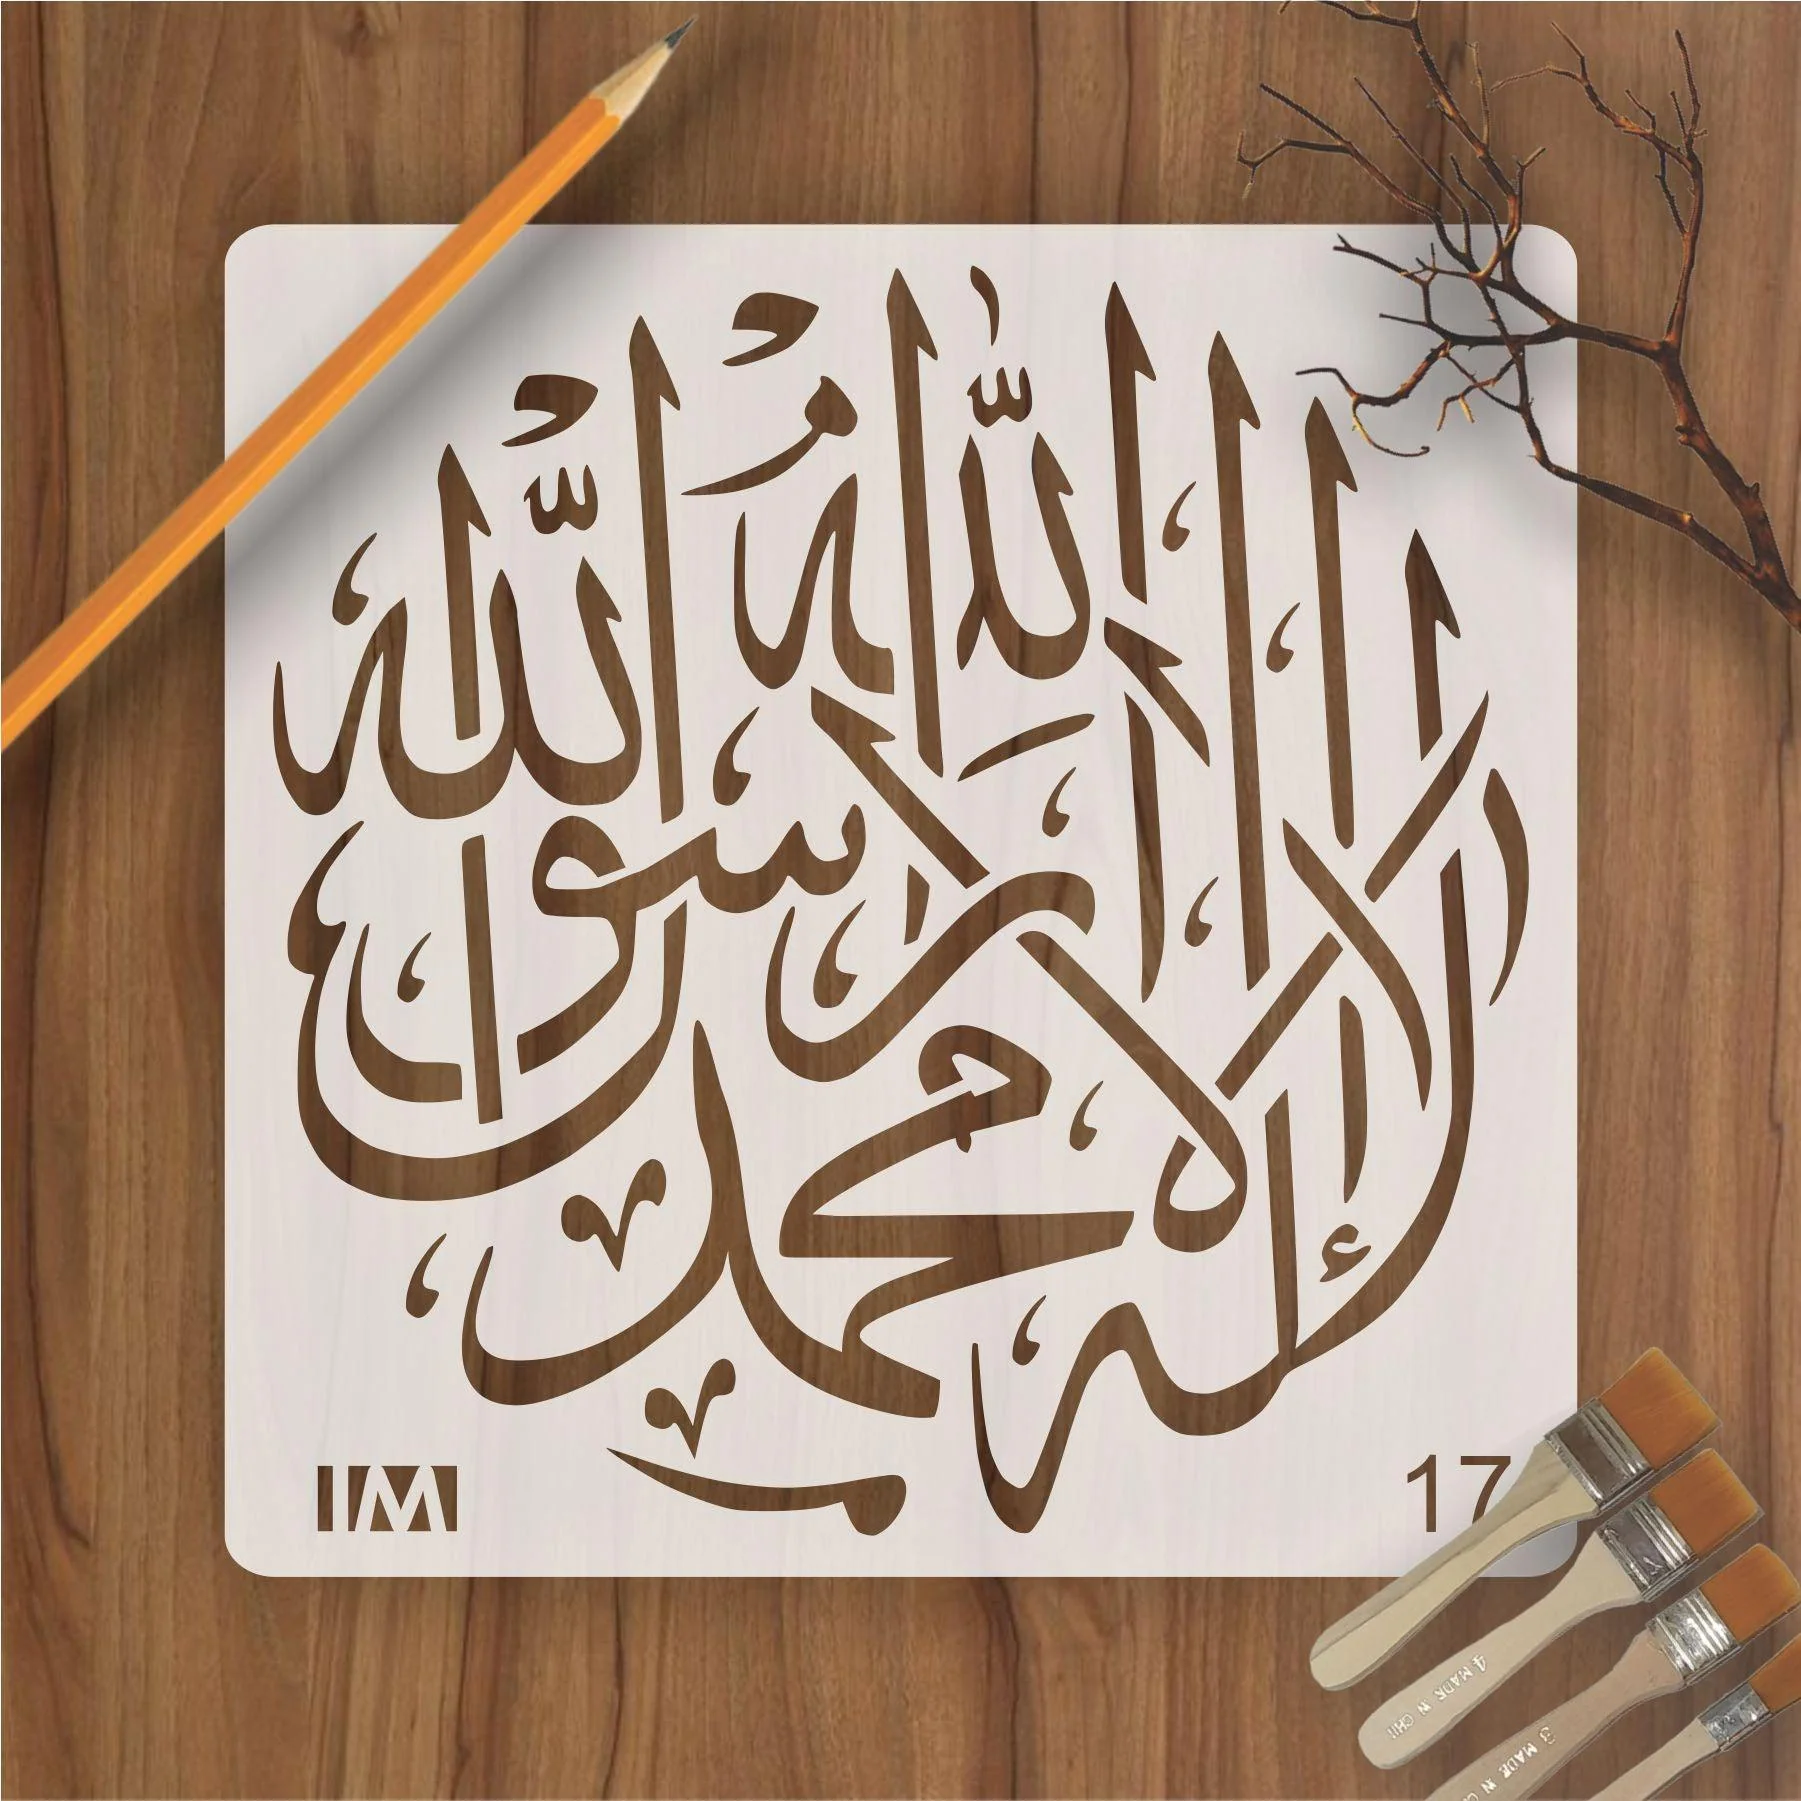 لا إله إلا الله محمد رسول الله
IMI
17
4 MADE IN CHI
3 MADE IN C